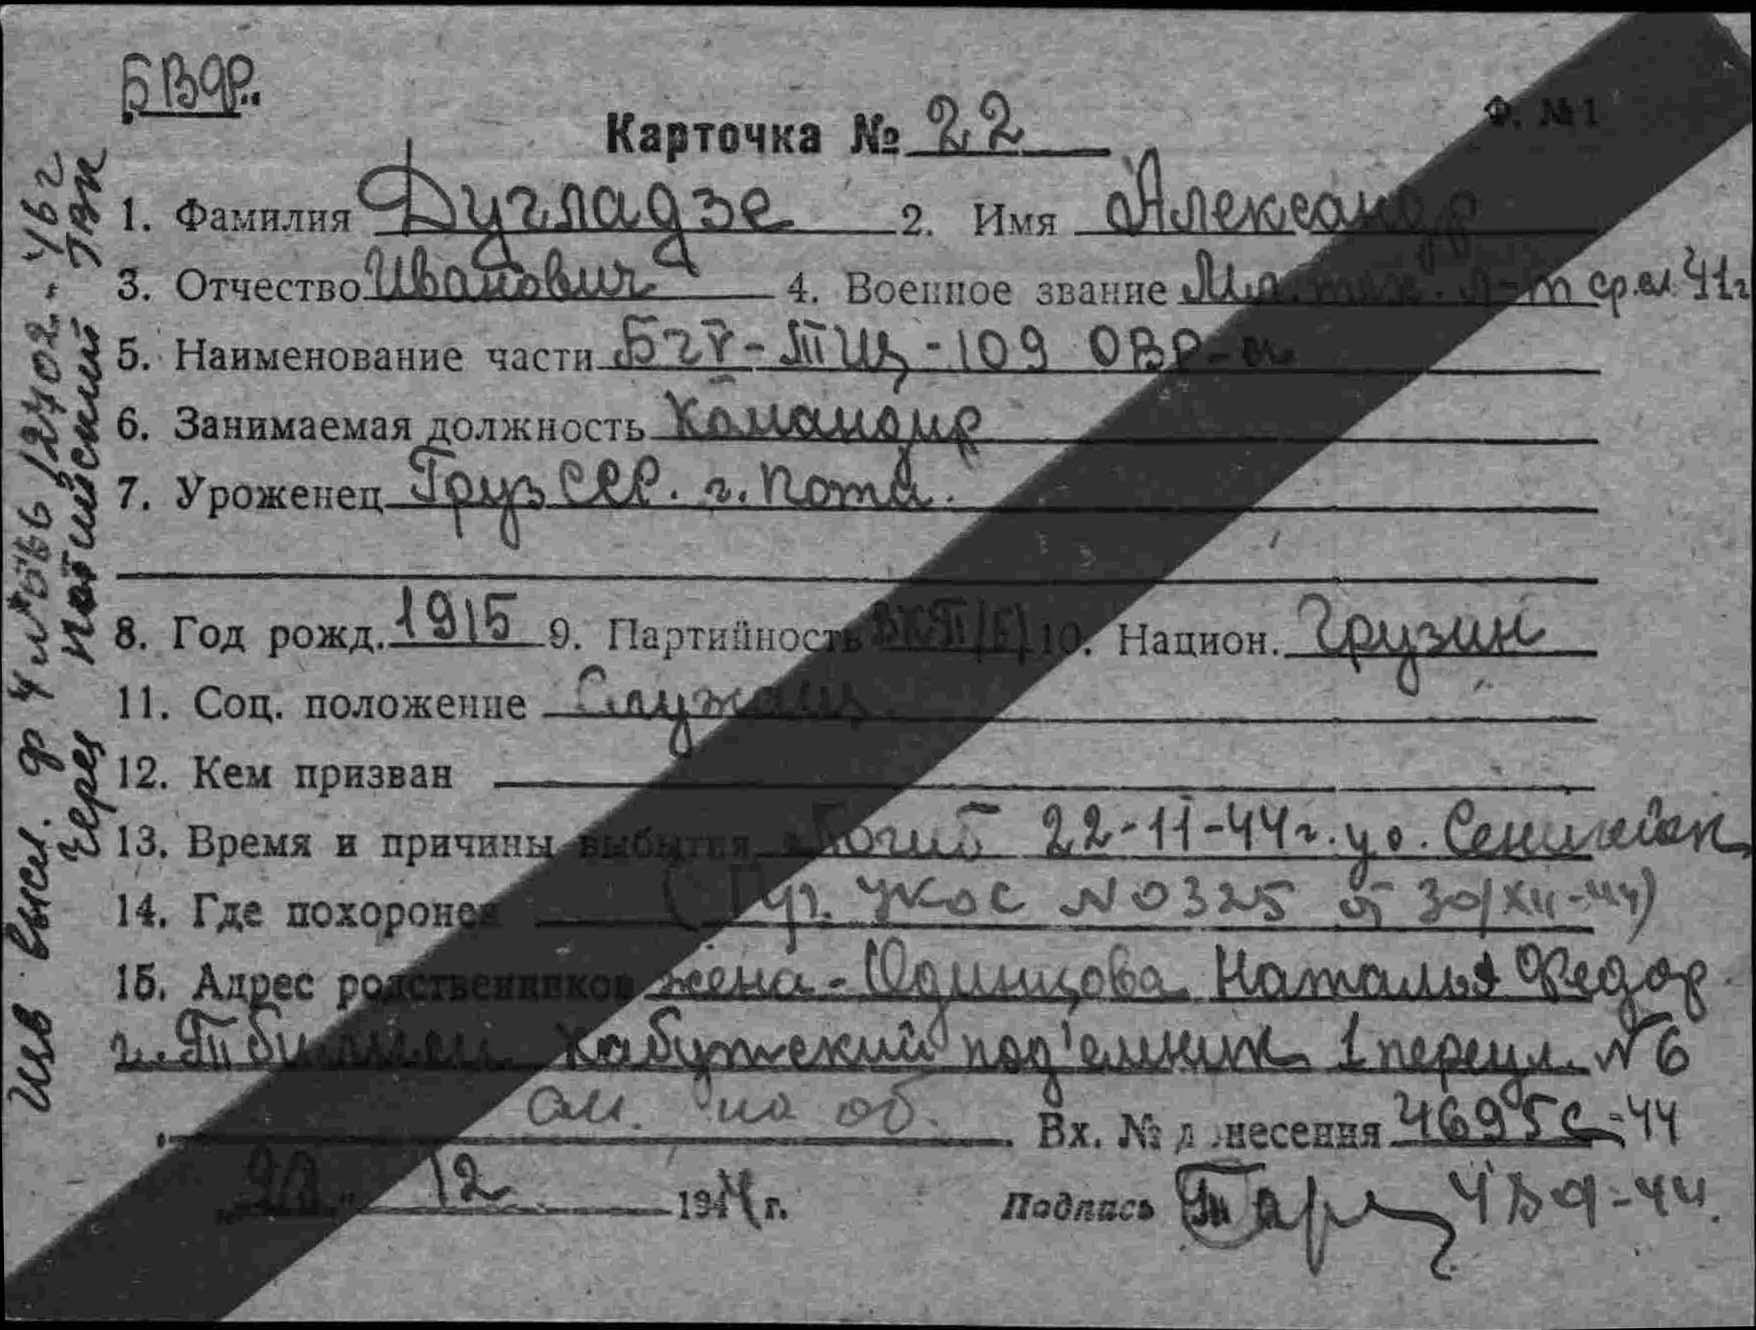 Карточка № 22
Ф. №1
1. Фамилия Дугладзе 2. Имя Александр
3. Отчество Иванович 4. Военное звание Мл. тех. л-т ср.сл 41г
5. Наименование части БТЩ - 109 ОВР
6. Занимаемая должность Командир
7. Уроженец Груз ССР. г. Поти.
8. Год рожд. 1915 9. Партийность ВКП/б/ 10. Национ. Грузин
11. Соц. положение Служащ.
12. Кем призван
13. Время и причины выбытия Погиб 22-11-44г. у о.
14. Где похоронен (Пр. УКОС №0325 от 30/XII-44)
15. Адрес родственников жена - Одинцова Наталья Федор.
г. Тбилиси подъемник 1 переул. №6
см. на об. Вх. № донесения 4695с-44
12 1944 г. Подпись
Изв. высл. ф 4 46г
через Потийский ГВК